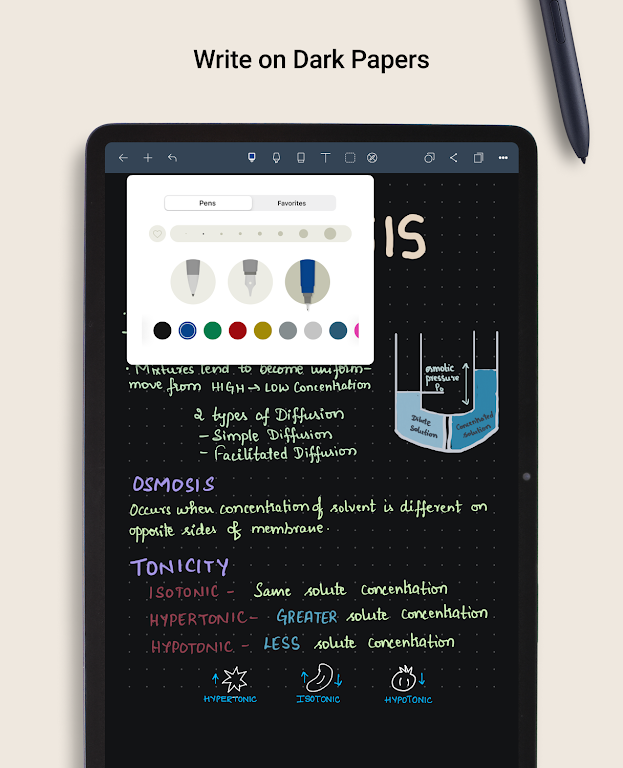 Write on Dark Papers
T
Pens
Favorites
SIS
• Mixtures tend to become uniform-
move from HIGH → LOW Concentration
2 types of Diffusion
- Simple Diffusion
- Facilitated Diffusion
osmotic
pressure
Po
Dilute
Solution
Concentrated
Solution
OSMOSIS
Occurs when concentration of solvent is different on
opposite sides of membrane.
TONICITY
ISOTONIC - Same solute concentration
HYPERTONIC - GREATER solute concentration
HYPOTONIC - LESS solute concentration
HYPERTONIC
ISOTONIC
HYPOTONIC